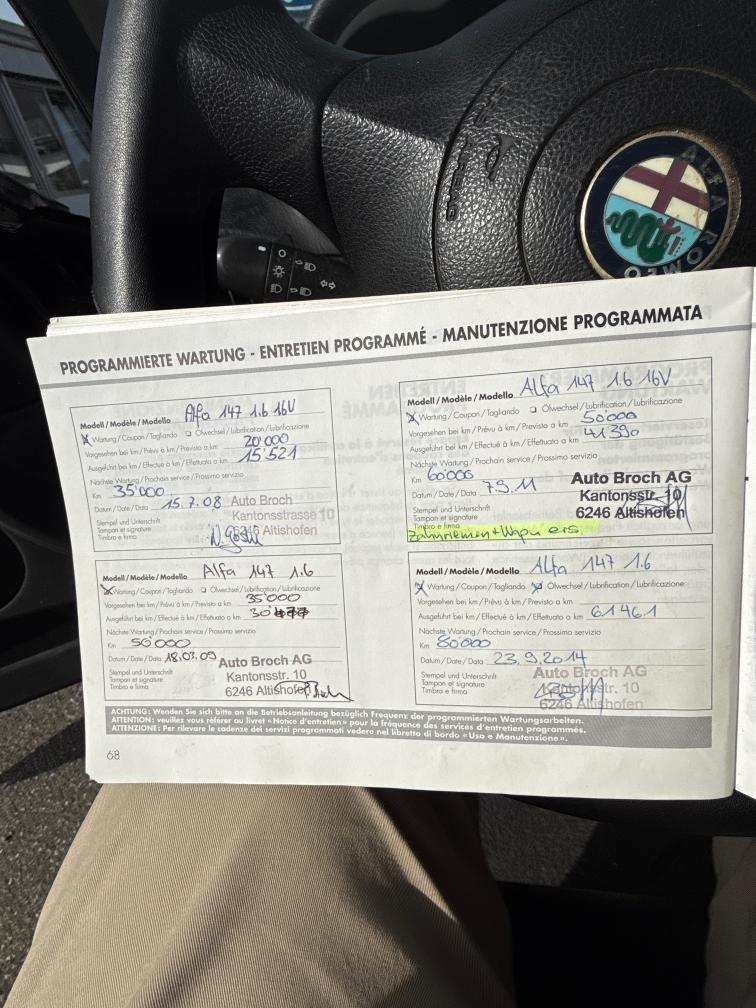 AIRBAG
ALFA ROMEO
PROGRAMMIERTE WARTUNG - ENTRETIEN PROGRAMMÉ - MANUTENZIONE PROGRAMMATA
Modell / Modèle / Modello Alfa 147 1.6 16V
X Wartung / Coupon / Tagliando ❑ Ölwechsel / Lubrification / Lubrificazione
Vorgesehen bei km / Prévu à km / Previsto a km 20'000
Ausgeführt bei km / Effectué à km / Effettuato a km 15'521
Nächste Wartung / Prochain service / Prossimo servizio
Km 35'000
Datum / Date / Data 15.7.08
Stempel und Unterschrift
Tampon et signature
Timbro e firma
Auto Broch
Kantonsstrasse 10
6246 Altishofen
Modell / Modèle / Modello Alfa 147 1.6
X Wartung / Coupon / Tagliando ❑ Ölwechsel / Lubrification / Lubrificazione
Vorgesehen bei km / Prévu à km / Previsto a km 35'000
Ausgeführt bei km / Effectué à km / Effettuato a km
Nächste Wartung / Prochain service / Prossimo servizio
Km 50'000
Datum / Date / Data 18.03.09
Stempel und Unterschrift
Tampon et signature
Timbro e firma
Auto Broch AG
Kantonsstr. 10
6246 Altishofen
Modell / Modèle / Modello Alfa 147 1.6 16V
X Wartung / Coupon / Tagliando ❑ Ölwechsel / Lubrification / Lubrificazione
Vorgesehen bei km / Prévu à km / Previsto a km 50'000
Ausgeführt bei km / Effectué à km / Effettuato a km 41'390
Nächste Wartung / Prochain service / Prossimo servizio
Km 60'000
Datum / Date / Data 7.9.11
Stempel und Unterschrift
Tampon et signature
Timbro e firma
Auto Broch AG
Kantonsstr. 10
6246 Altishofen
Zahnriemen + Wapu ers.
Modell / Modèle / Modello Alfa 147 1.6
X Wartung / Coupon / Tagliando X Ölwechsel / Lubrification / Lubrificazione
Vorgesehen bei km / Prévu à km / Previsto a km
Ausgeführt bei km / Effectué à km / Effettuato a km 61461
Nächste Wartung / Prochain service / Prossimo servizio
Km 80'000
Datum / Date / Data 23.9.2014
Stempel und Unterschrift
Tampon et signature
Timbro e firma
Auto Broch AG
Kantonsstr. 10
6246 Altishofen
ACHTUNG: Wenden Sie sich bitte an die Betriebsanleitung bezüglich Frequenz der programmierten Wartungsarbeiten.
ATTENTION: veuillez vous référer au livret «Notice d'entretien» pour la fréquence des services d'entretien programmés.
ATTENZIONE: Per rilevare le cadenze dei servizi programmati vedere nel libretto di bordo «Uso e Manutenzione».
68